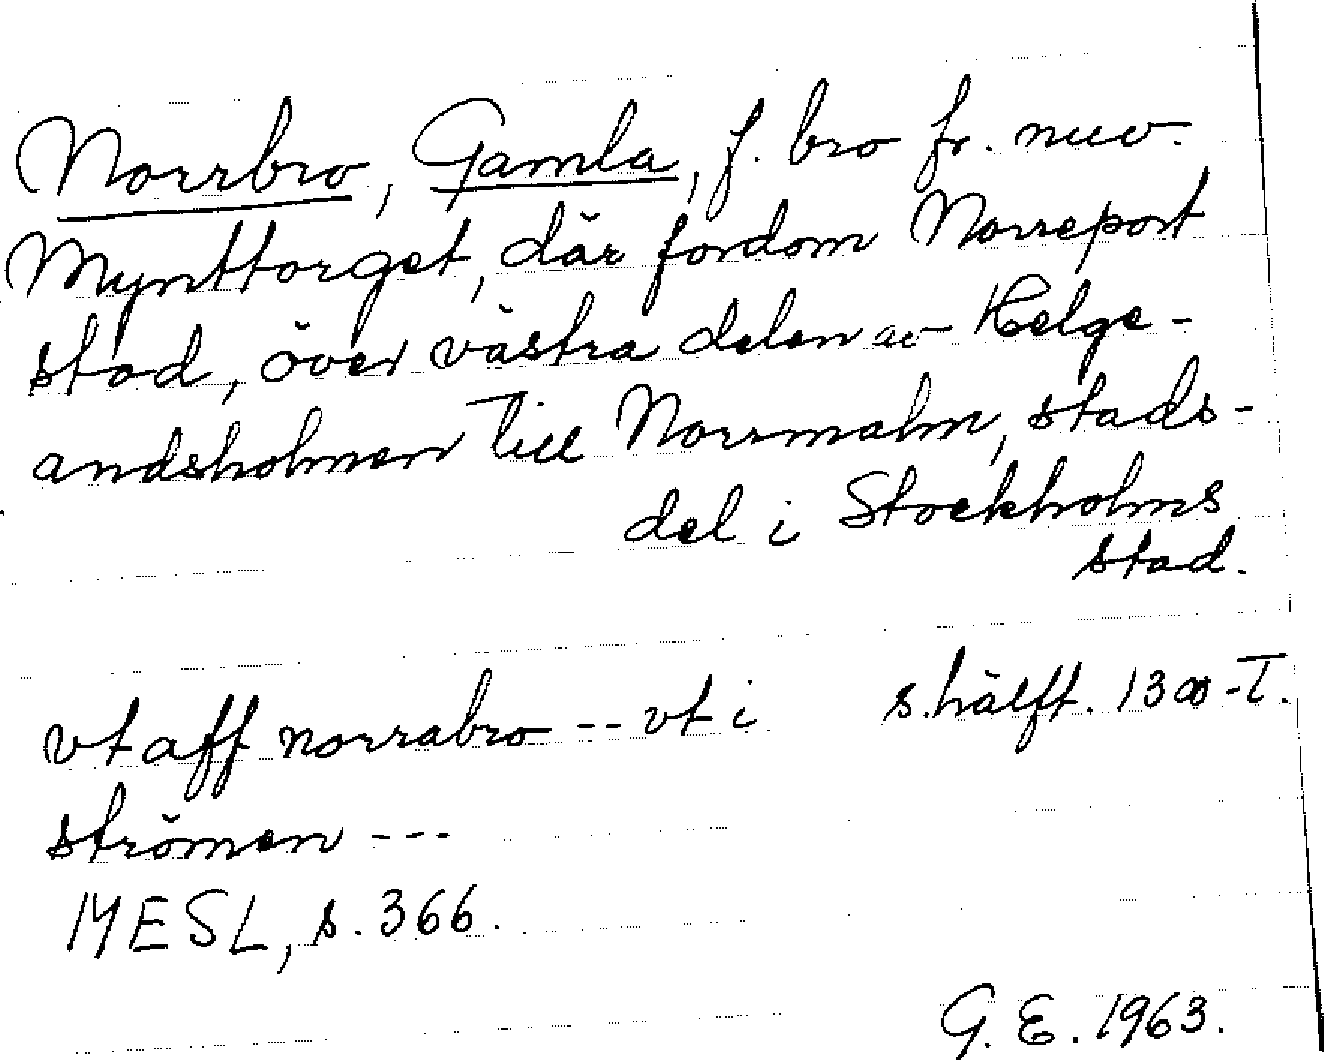 Norrbro, Gamla, f. bro fr. nuv.
Mynttorget, där fordom Norreport
stod, över västra delen av Helge-
andsholmen till Norrmalm, stads-
del i Stockholms
stad.
vt aff norrabro -- vt i s. hälft. 1300-T.
strömen ---
MESL, s. 366.
G. E. 1963.